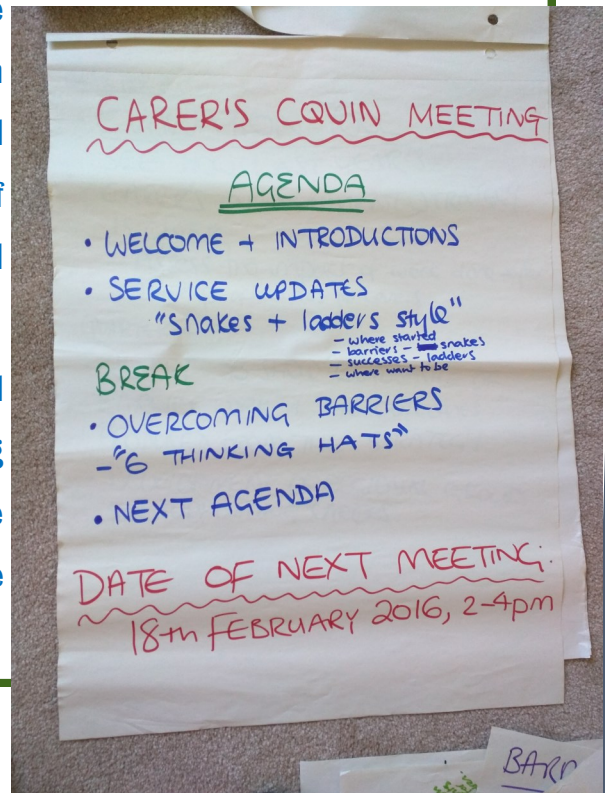 CARER'S CQUIN MEETING
AGENDA
• WELCOME + INTRODUCTIONS
• SERVICE UPDATES
"snakes + ladders style"
- where started
- barriers - snakes
- successes - ladders
- where want to be
BREAK
• OVERCOMING BARRIERS
- "6 THINKING HATS"
• NEXT AGENDA
DATE OF NEXT MEETING:
18th FEBRUARY 2016, 2-4pm